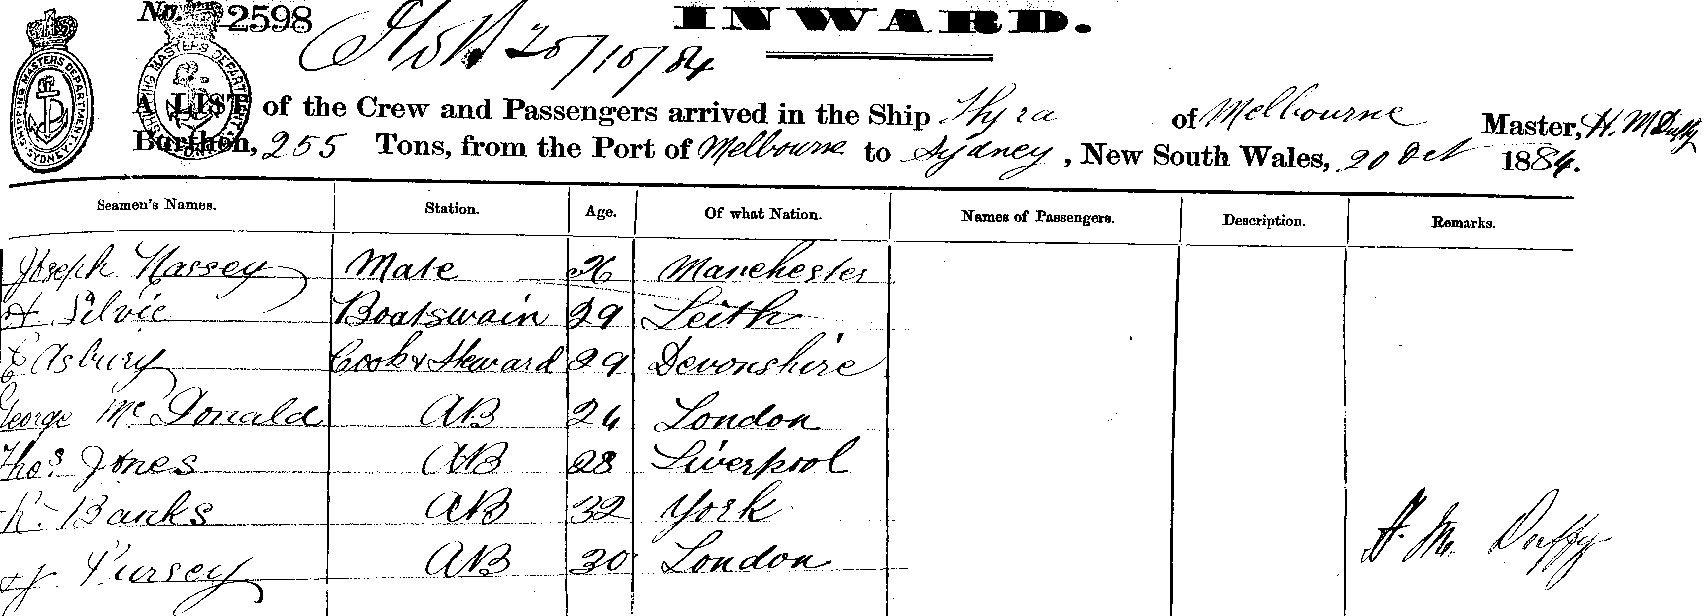 No. 2598
INWARD.
20/10/84
A LIST of the Crew and Passengers arrived in the Ship Thyra of Melbourne Master, H. McDuffy
Burthen, 255 Tons, from the Port of Melbourne to Sydney, New South Wales, 20 Oct 1884.
Seamen's Names. Station. Age. Of what Nation. Names of Passengers. Description. Remarks.
Joseph Massey Mate 26 Manchester
Silvie Boatswain 29 Leith
E Asbury Cook & Steward 29 Devonshire
George McDonald AB 24 London
Thos Jones AB 28 Liverpool
Banks AB 32 York
Pursey AB 30 London
H. Mc Duffy
SHIPPING MASTERS DEPARTMENT SYDNEY